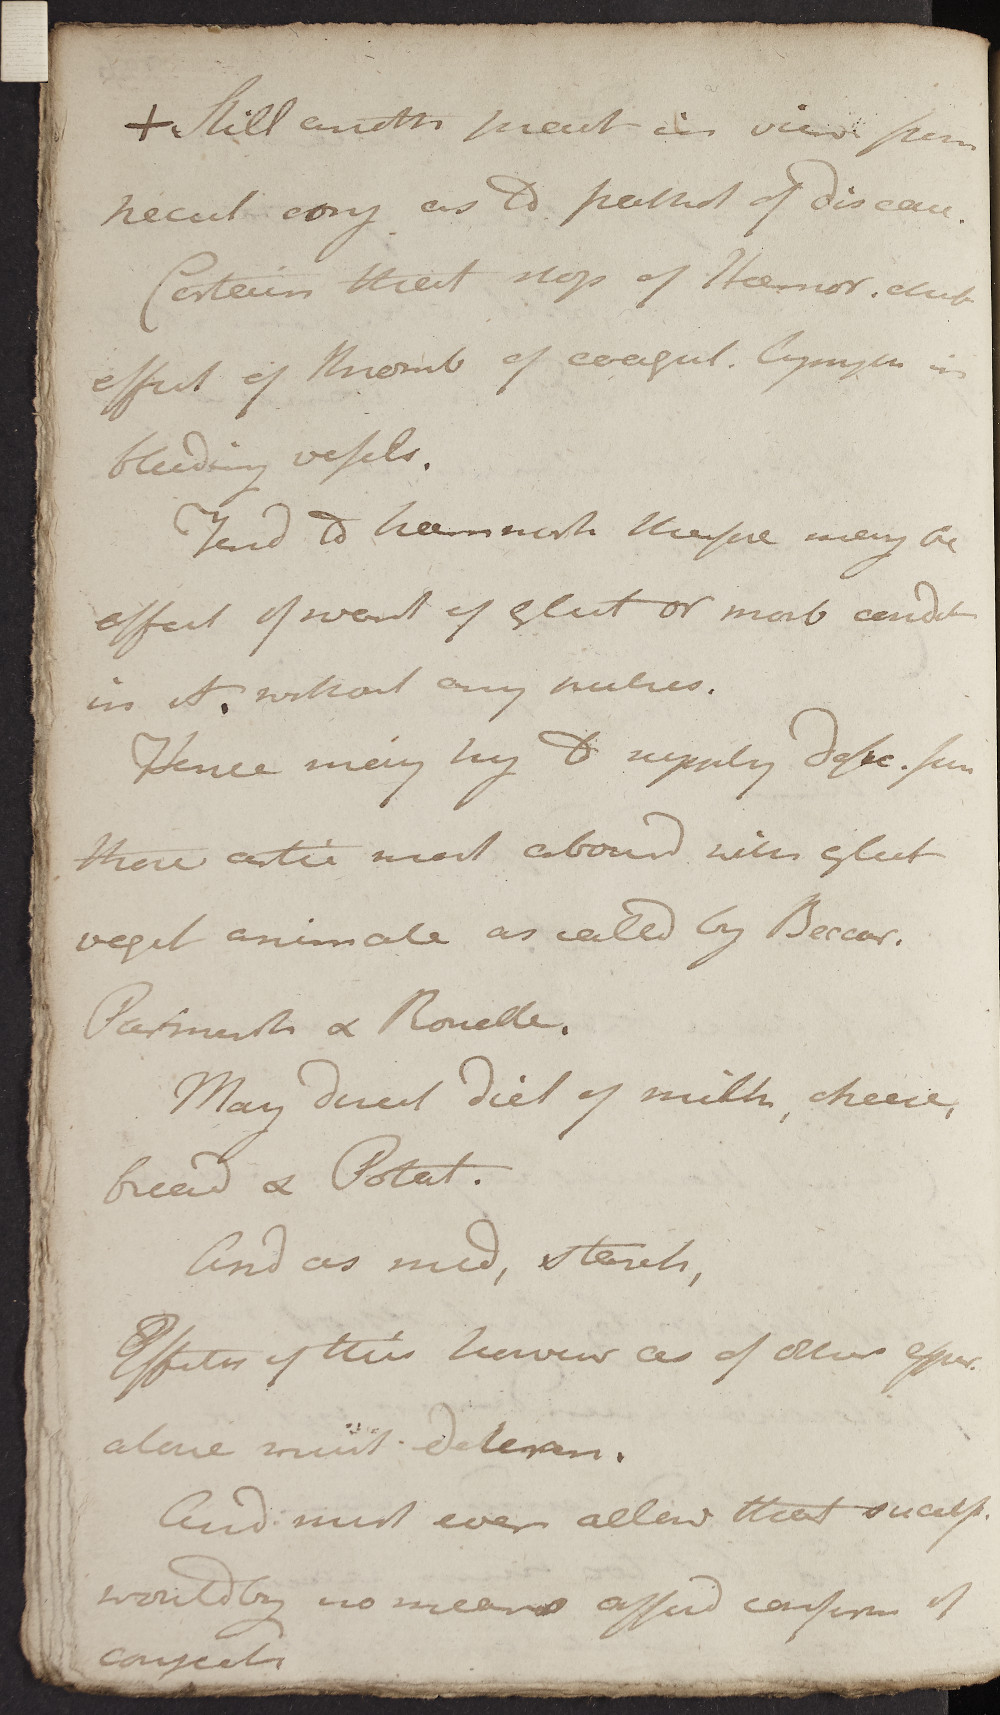 + Still anoth preat in view from
pecul conj as to pathol of disease.
Certain that stop of Hæmor. chief
effect of thromb of coagul. lymph in
bleeding vessels.
Tend to hæmorrh therefore may be
effect of want of glut or morb condit
in it, without any putres.
Hence may try to supply defic. from
those artic most abound with glut
veget animale as called by Beccar.
Parmenth & Rouelle.
May direct diet of milk, cheese,
bread & Potat.
And as med, starch,
Effects of this however as of others exper.
alone must determ.
And must even allow that success.
would by no means afford confirm of
conject